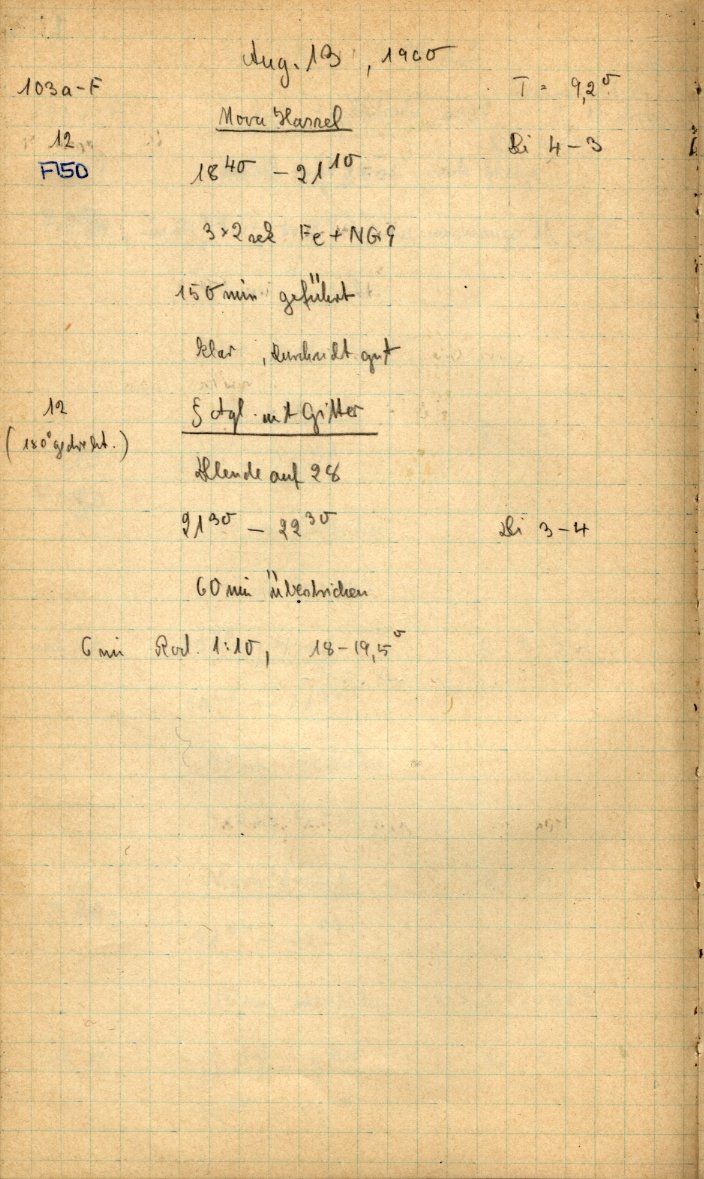 Aug. 13, 1960
103a-F
T = 9,2°
Nova Hassel
12
Bi 4-3
F150
18 40 - 21 10
3×2 sek Fe + NG9
150 min geführt
klar, Durchsicht gut
12
ζ Aql. mit Gitter
(180° gedreht.)
Blende auf 28
21 30 - 22 30
Bi 3-4
60 min überstrichen
6 min Rod. 1:10, 18-19,5°